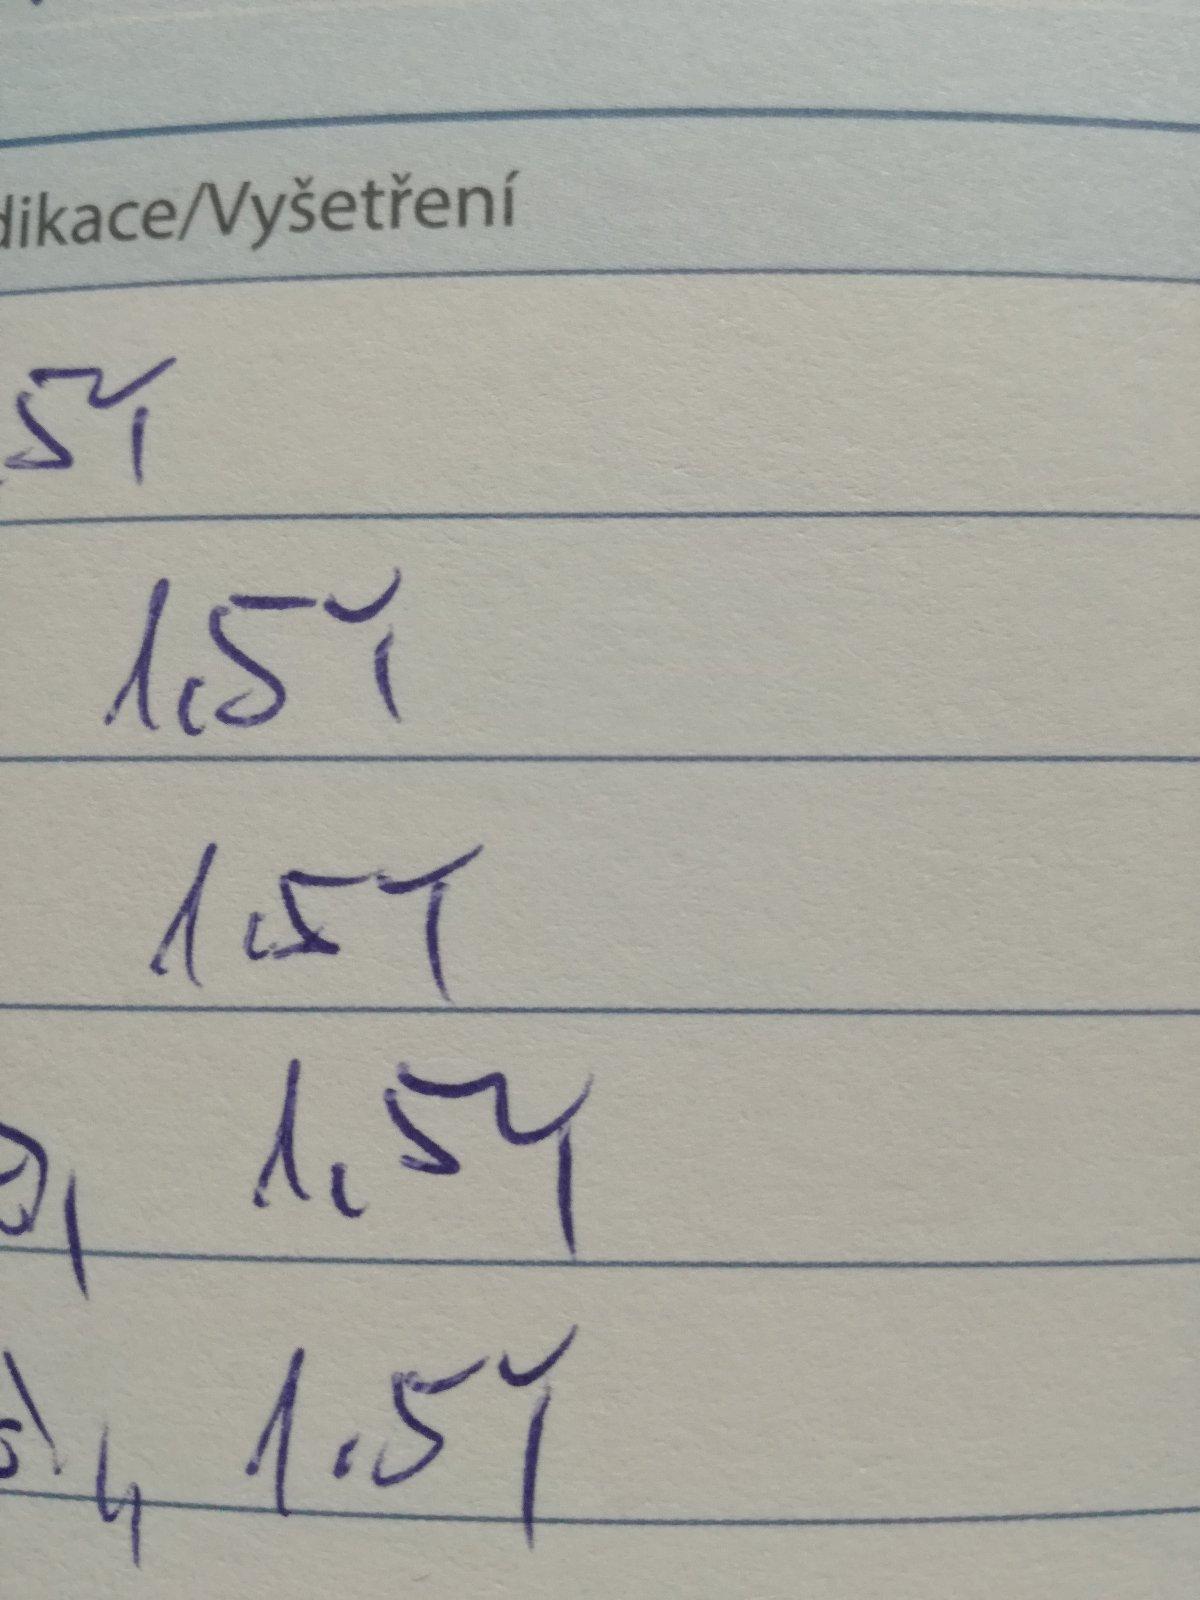 dikace/Vyšetření
,5Y
1,5Y
1,5Y
1,5Y
1,5Y